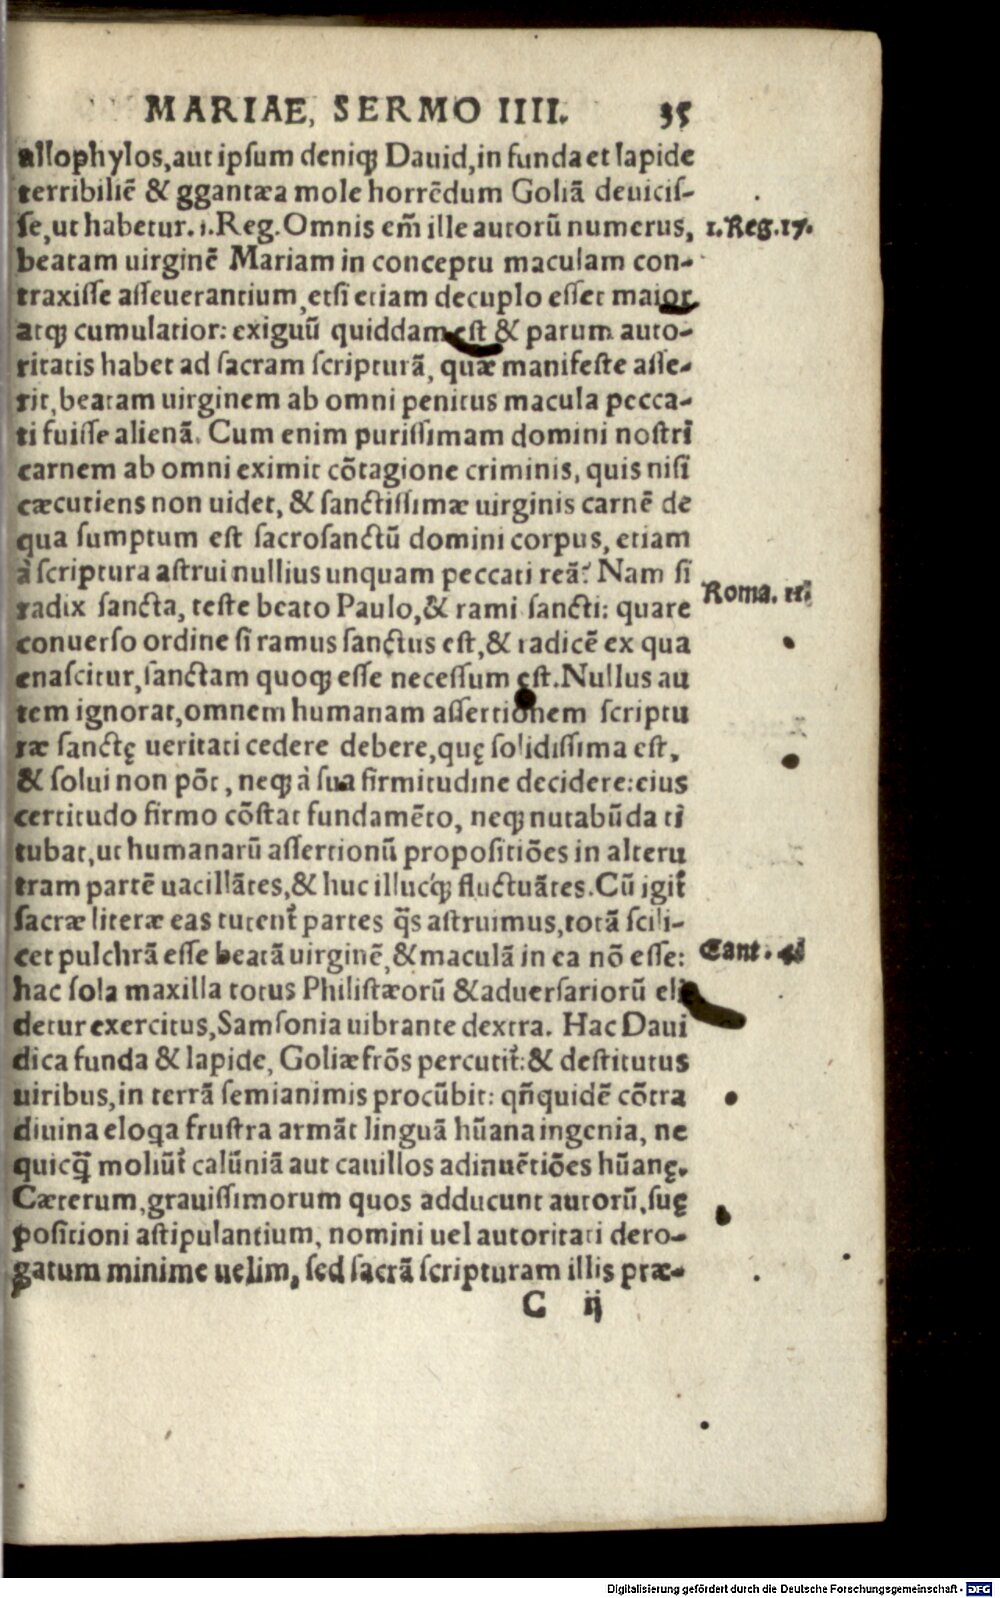 MARIAE, SERMO IIII. 35
allophylos,aut ipsum deniqꝫ Dauid,in funda et lapide
terribiliē & ggantæa mole horrēdum Goliā deuicis-
se,ut habetur.1.Reg.Omnis em̄ ille autorū numerus, 1.Reg.17.
beatam uirginē Mariam in conceptu maculam con-
traxisse asseuerantium,etsi etiam decuplo esset maior
atqꝫ cumulatior: exiguū quiddam est & parum auto-
ritatis habet ad sacram scripturā, quæ manifeste asse-
rit,beatam uirginem ab omni penitus macula pecca-
ti fuisse alienā. Cum enim purissimam domini nostri
carnem ab omni eximit cōtagione criminis, quis nisi
cæcutiens non uidet, & sanctissimæ uirginis carnē de
qua sumptum est sacrosanctū domini corpus, etiam
à scriptura astrui nullius unquam peccati reā? Nam si
radix sancta, teste beato Paulo,& rami sancti: quare Roma. 11.
conuerso ordine si ramus sanctus est,& radicē ex qua
enascitur,sanctam quoqꝫ esse necessum est.Nullus au
tem ignorat,omnem humanam assertionem scriptu
ræ sanctę ueritati cedere debere,quę solidissima est,
& solui non pōt, neqꝫ à sua firmitudine decidere:eius
certitudo firmo cōstat fundamēto, neqꝫ nutabūda ti
tubat,ut humanarū assertionū propositiōes in alteru
tram partē uacillātes,& huc illucqꝫ fluctuātes.Cū igit̃
sacræ literæ eas tutent̃ partes q̃s astruimus,totā scili-
cet pulchrā esse beatā uirginē,& maculā in ea nō esse: Cant. 4
hac sola maxilla totus Philistæorū & aduersariorū eli
detur exercitus,Samsonia uibrante dextra. Hac Daui
dica funda & lapide, Goliæ frōs percutit̃:& destitutus
uiribus,in terrā semianimis procūbit: qñquidē cōtra
diuina eloqa frustra armāt linguā hūana ingenia, ne
quicq̃ moliūt̃ calūniā aut cauillos adinuētiōes hūanę.
Cæterum,grauissimorum quos adducunt autorū,suę
positioni astipulantium, nomini uel autoritati dero-
gatum minime uelim, sed sacrā scripturam illis præ-
C ij
Digitalisierung gefördert durch die Deutsche Forschungsgemeinschaft - DFG